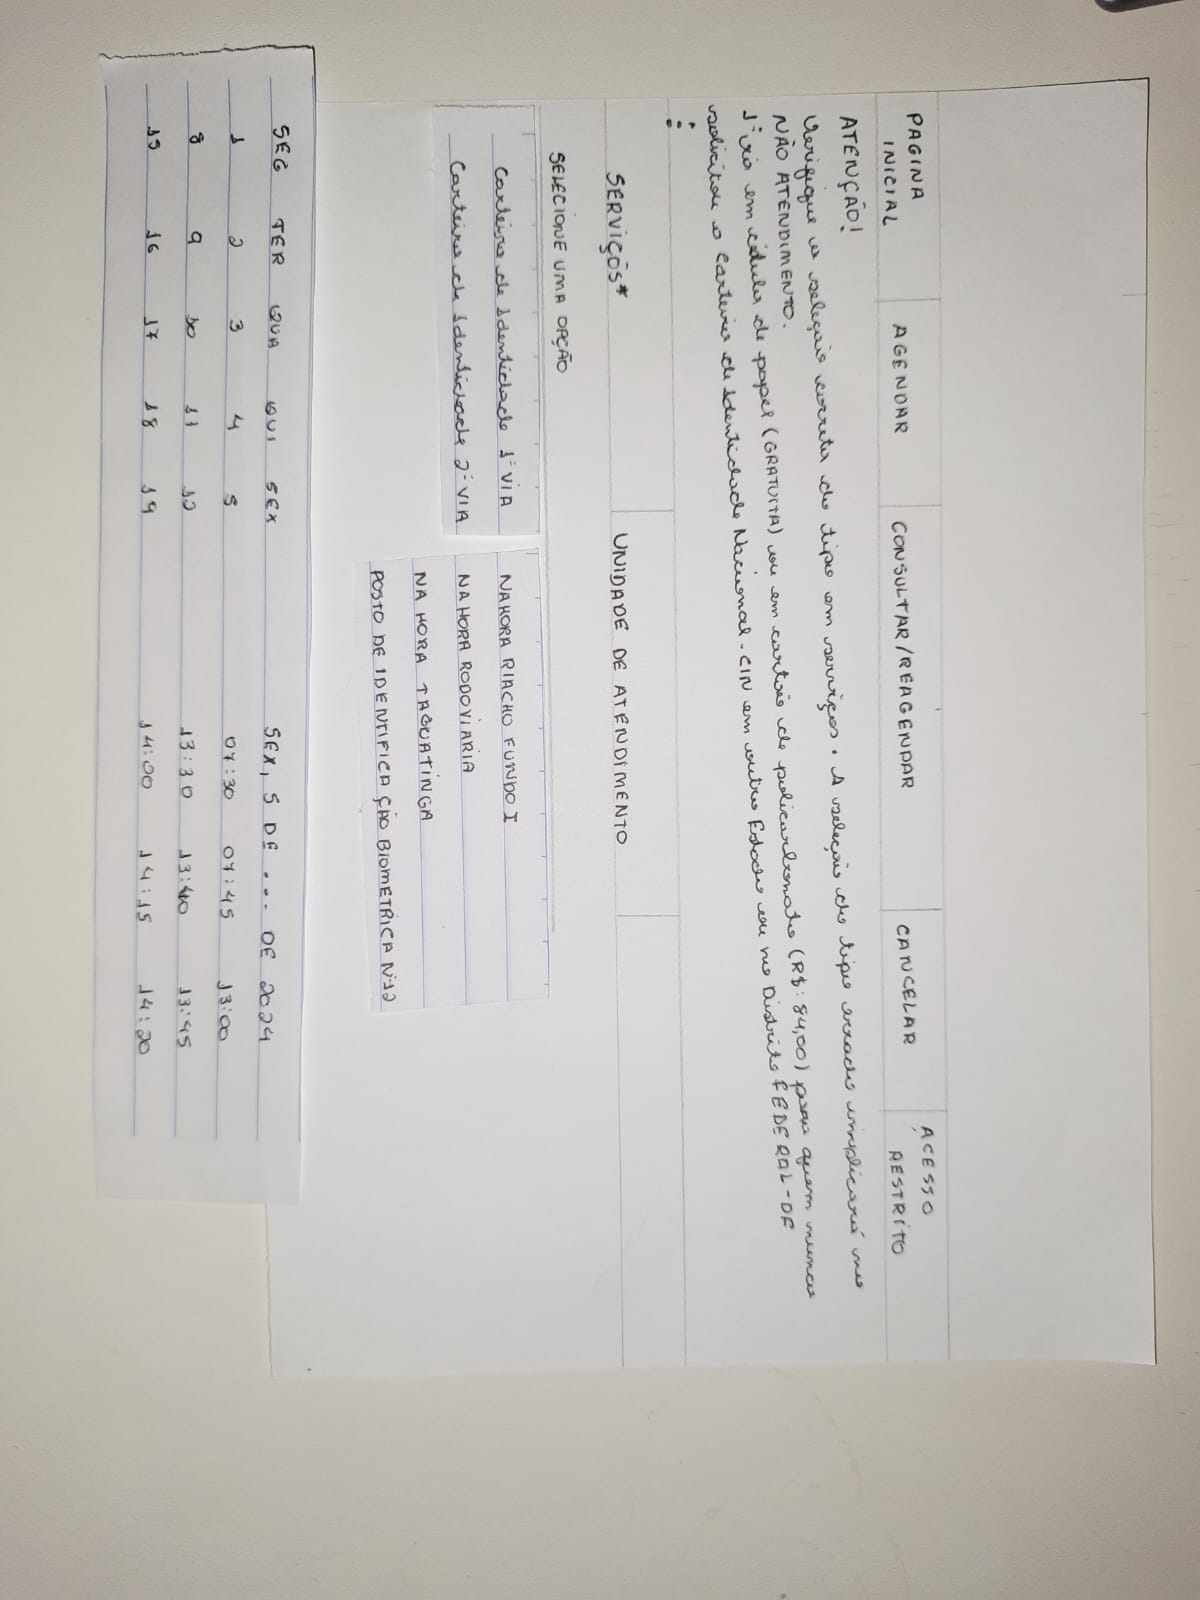 PAGINA INICIAL AGENDAR CONSULTAR/REAGENDAR CANCELAR ACESSO RESTRITO
ATENÇÃO!
Verifique a seleção correta do tipo em serviços. A seleção do tipo errado implicará no
NÃO ATENDIMENTO.
1ª via em cédula de papel (GRATUITA) ou em cartão de policarbonato (R$: 84,00) para quem nunca
solicitou a Carteira de Identidade Nacional - CIN em outro Estado ou no Distrito FEDERAL-DF
⋮
SERVIÇOS* UNIDADE DE ATENDIMENTO
SELECIONE UMA OPÇÃO
Carteira de Identidade 1ª VIA
Carteira de Identidade 2ª VIA
NAHORA RIACHO FUNDO I
NA HORA RODOVIARIA
NA HORA TAGUATINGA
POSTO DE IDENTIFICAÇÃO BIOMETRICA Nº12
SEG TER QUA QUI SEX SEX, 5 DE ... DE 2024
1 2 3 4 5 07:30 07:45 13:00
8 9 10 11 12 13:30 13:40 13:45
15 16 17 18 19 14:00 14:15 14:20